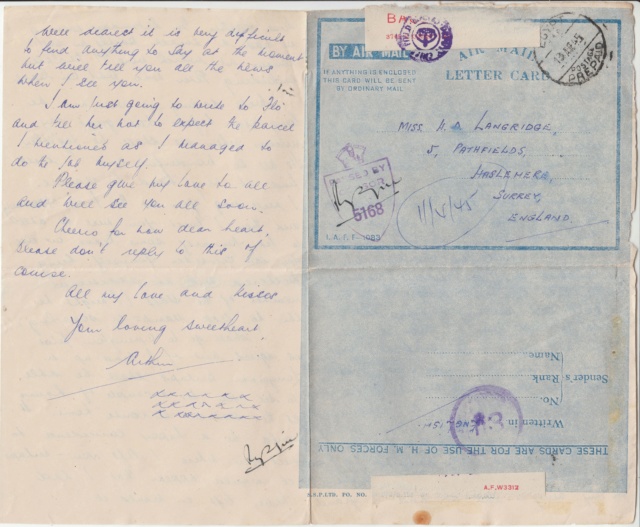 Well dearest it is very difficult
to find anything to say at the moment
but will tell you all the news
when I see you.
I am just going to write to Flo
and tell her not to expect the parcel
I mentioned as I managed to
do the job myself.
Please give my love to all
and will see you all soon.
Cheerio for now dear heart,
please don't reply to this of
course.
All my love and kisses
Your loving sweetheart
Arthur
xxxxxxx
xxxxxxxx
xxxxxxxxx
BY AIR MAIL
AIR MAIL
LETTER CARD
IF ANYTHING IS ENCLOSED
THIS CARD WILL BE SENT
BY ORDINARY MAIL
EGYPT
POSTAGE
PREPAID
MISS H.D LANGRIDGE,
5, PATHFIELDS,
HASLEMERE,
SURREY,
ENGLAND.
5168
11/5/45
Name
Sender's Rank
No.
Written in ENGLISH
THESE CARDS ARE FOR THE USE OF H.M. FORCES ONLY
A.F.W3312